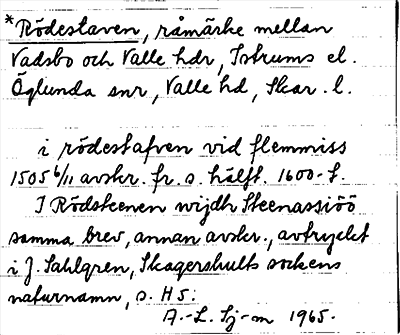 *Rödestaven, råmärke mellan
Vadsbo och Valle hdr, Istrums el.
Öglunda snr, Valle hd, Skar. l.
i rödestafven vid flemmiss
1505 6/11 avskr. fr. s. hälft. 1600-t.
I Rödsteenen wijdh Steenassiöö
samma brev, annan avskr., avtryckt
i J. Sahlgren, Skagershults sockens
naturnamn, s. H5:
A.-L. Sj-m 1965.